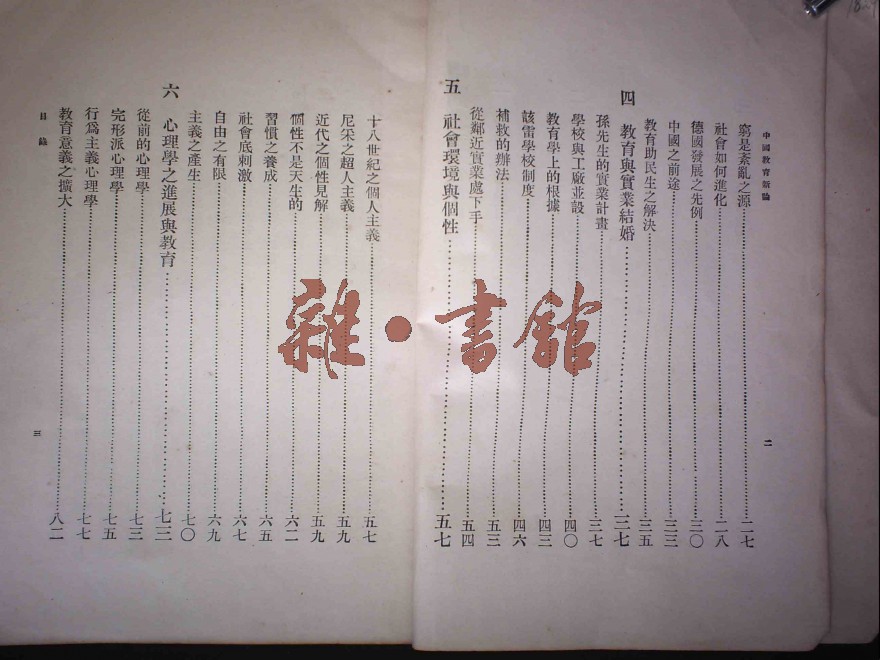 中國教育新論
二
窮是紊亂之源二七
社會如何進化二八
德國發展之先例三〇
中國之前途三三
教育助民生之解決三五
四 教育與實業結婚三七
孫先生的實業計畫三七
學校與工廠並設四〇
教育學上的根據四三
該雷學校制度四六
補救的辦法五三
從鄰近實業處下手五四
五 社會環境與個性五七
十八世紀之個人主義五七
尼采之超人主義五九
近代之個性見解五九
個性不是天生的六二
習慣之養成六五
社會底刺激六七
自由之有限六九
主義之產生七〇
六 心理學之進展與教育七三
從前的心理學七三
完形派心理學七五
行為主義心理學七七
教育意義之擴大八二
目錄
三
雜·書館